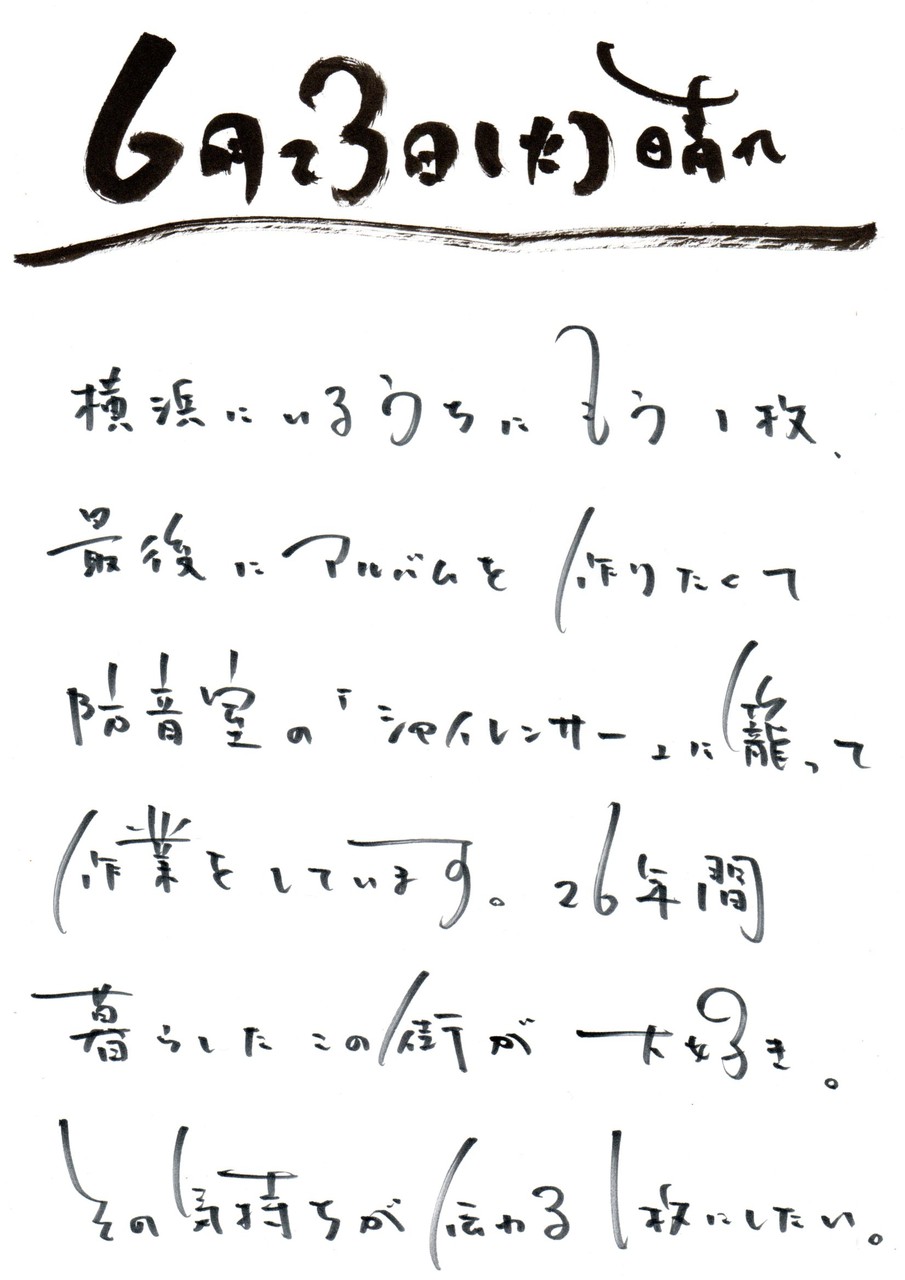 6月23日(火)晴れ
横浜にいるうちにもう1枚、
最後にアルバムを作りたくて
防音室の「シャイレンサー」に籠って
作業をしています。26年間
暮らしたこの街が大好き。
その気持ちが伝わる1枚にしたい。